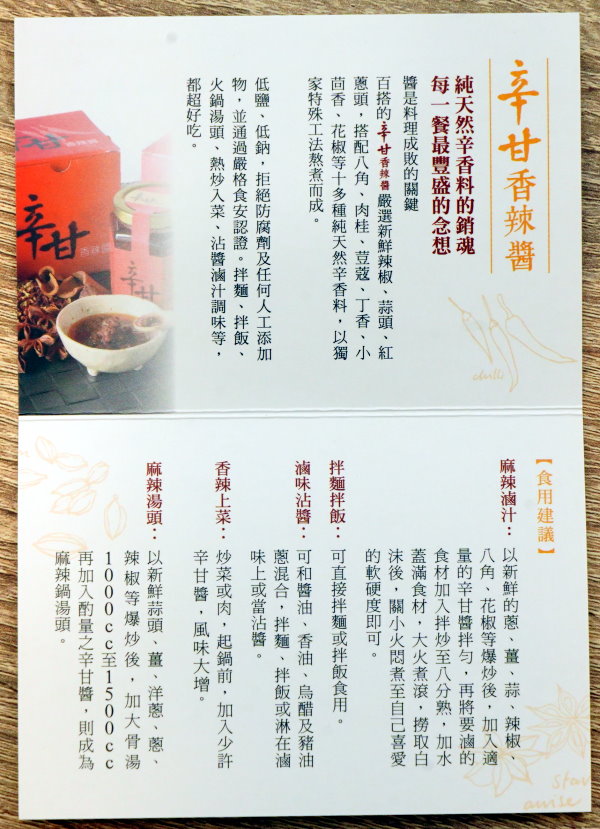 辛甘香辣醬
純天然辛香料的銷魂
每一餐最豐盛的念想
醬是料理成敗的關鍵
百搭的辛甘香辣醬嚴選新鮮辣椒、蒜頭、紅
蔥頭，搭配八角、肉桂、荳蔻、丁香、小
茴香、花椒等十多種純天然辛香料，以獨
家特殊工法熬煮而成。
低鹽、低鈉，拒絕防腐劑及任何人工添加
物，並通過嚴格食安認證。拌麵、拌飯、
火鍋湯頭、熱炒入菜、沾醬滷汁調味等，
都超好吃。
辛甘
辛甘
香辣醬
辛甘
chilli
【食用建議】
麻辣滷汁：以新鮮的蔥、薑、蒜、辣椒、
八角、花椒等爆炒後，加入適
量的辛甘醬拌勻，再將要滷的
食材加入拌炒至八分熟，加水
蓋滿食材，大火煮滾，撈取白
沫後，關小火悶煮至自己喜愛
的軟硬度即可。
拌麵拌飯：可直接拌麵或拌飯食用。
滷味沾醬：可和醬油、香油、烏醋及豬油
蔥混合，拌麵、拌飯或淋在滷
味上或當沾醬。
香辣上菜：炒菜或肉，起鍋前，加入少許
辛甘醬，風味大增。
麻辣湯頭：以新鮮蒜頭、薑、洋蔥、蔥、
辣椒等爆炒後，加大骨湯
1000cc至1500cc
再加入酌量之辛甘醬，則成為
麻辣鍋湯頭。
star
anise